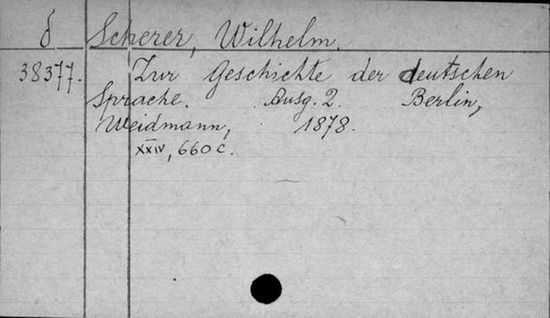 б Scherer, Wilhelm.
38377. Zur Geschichte der deutschen
Sprache. Ausg. 2. Berlin,
Weidmann, 1878.
XXIV, 660 c.